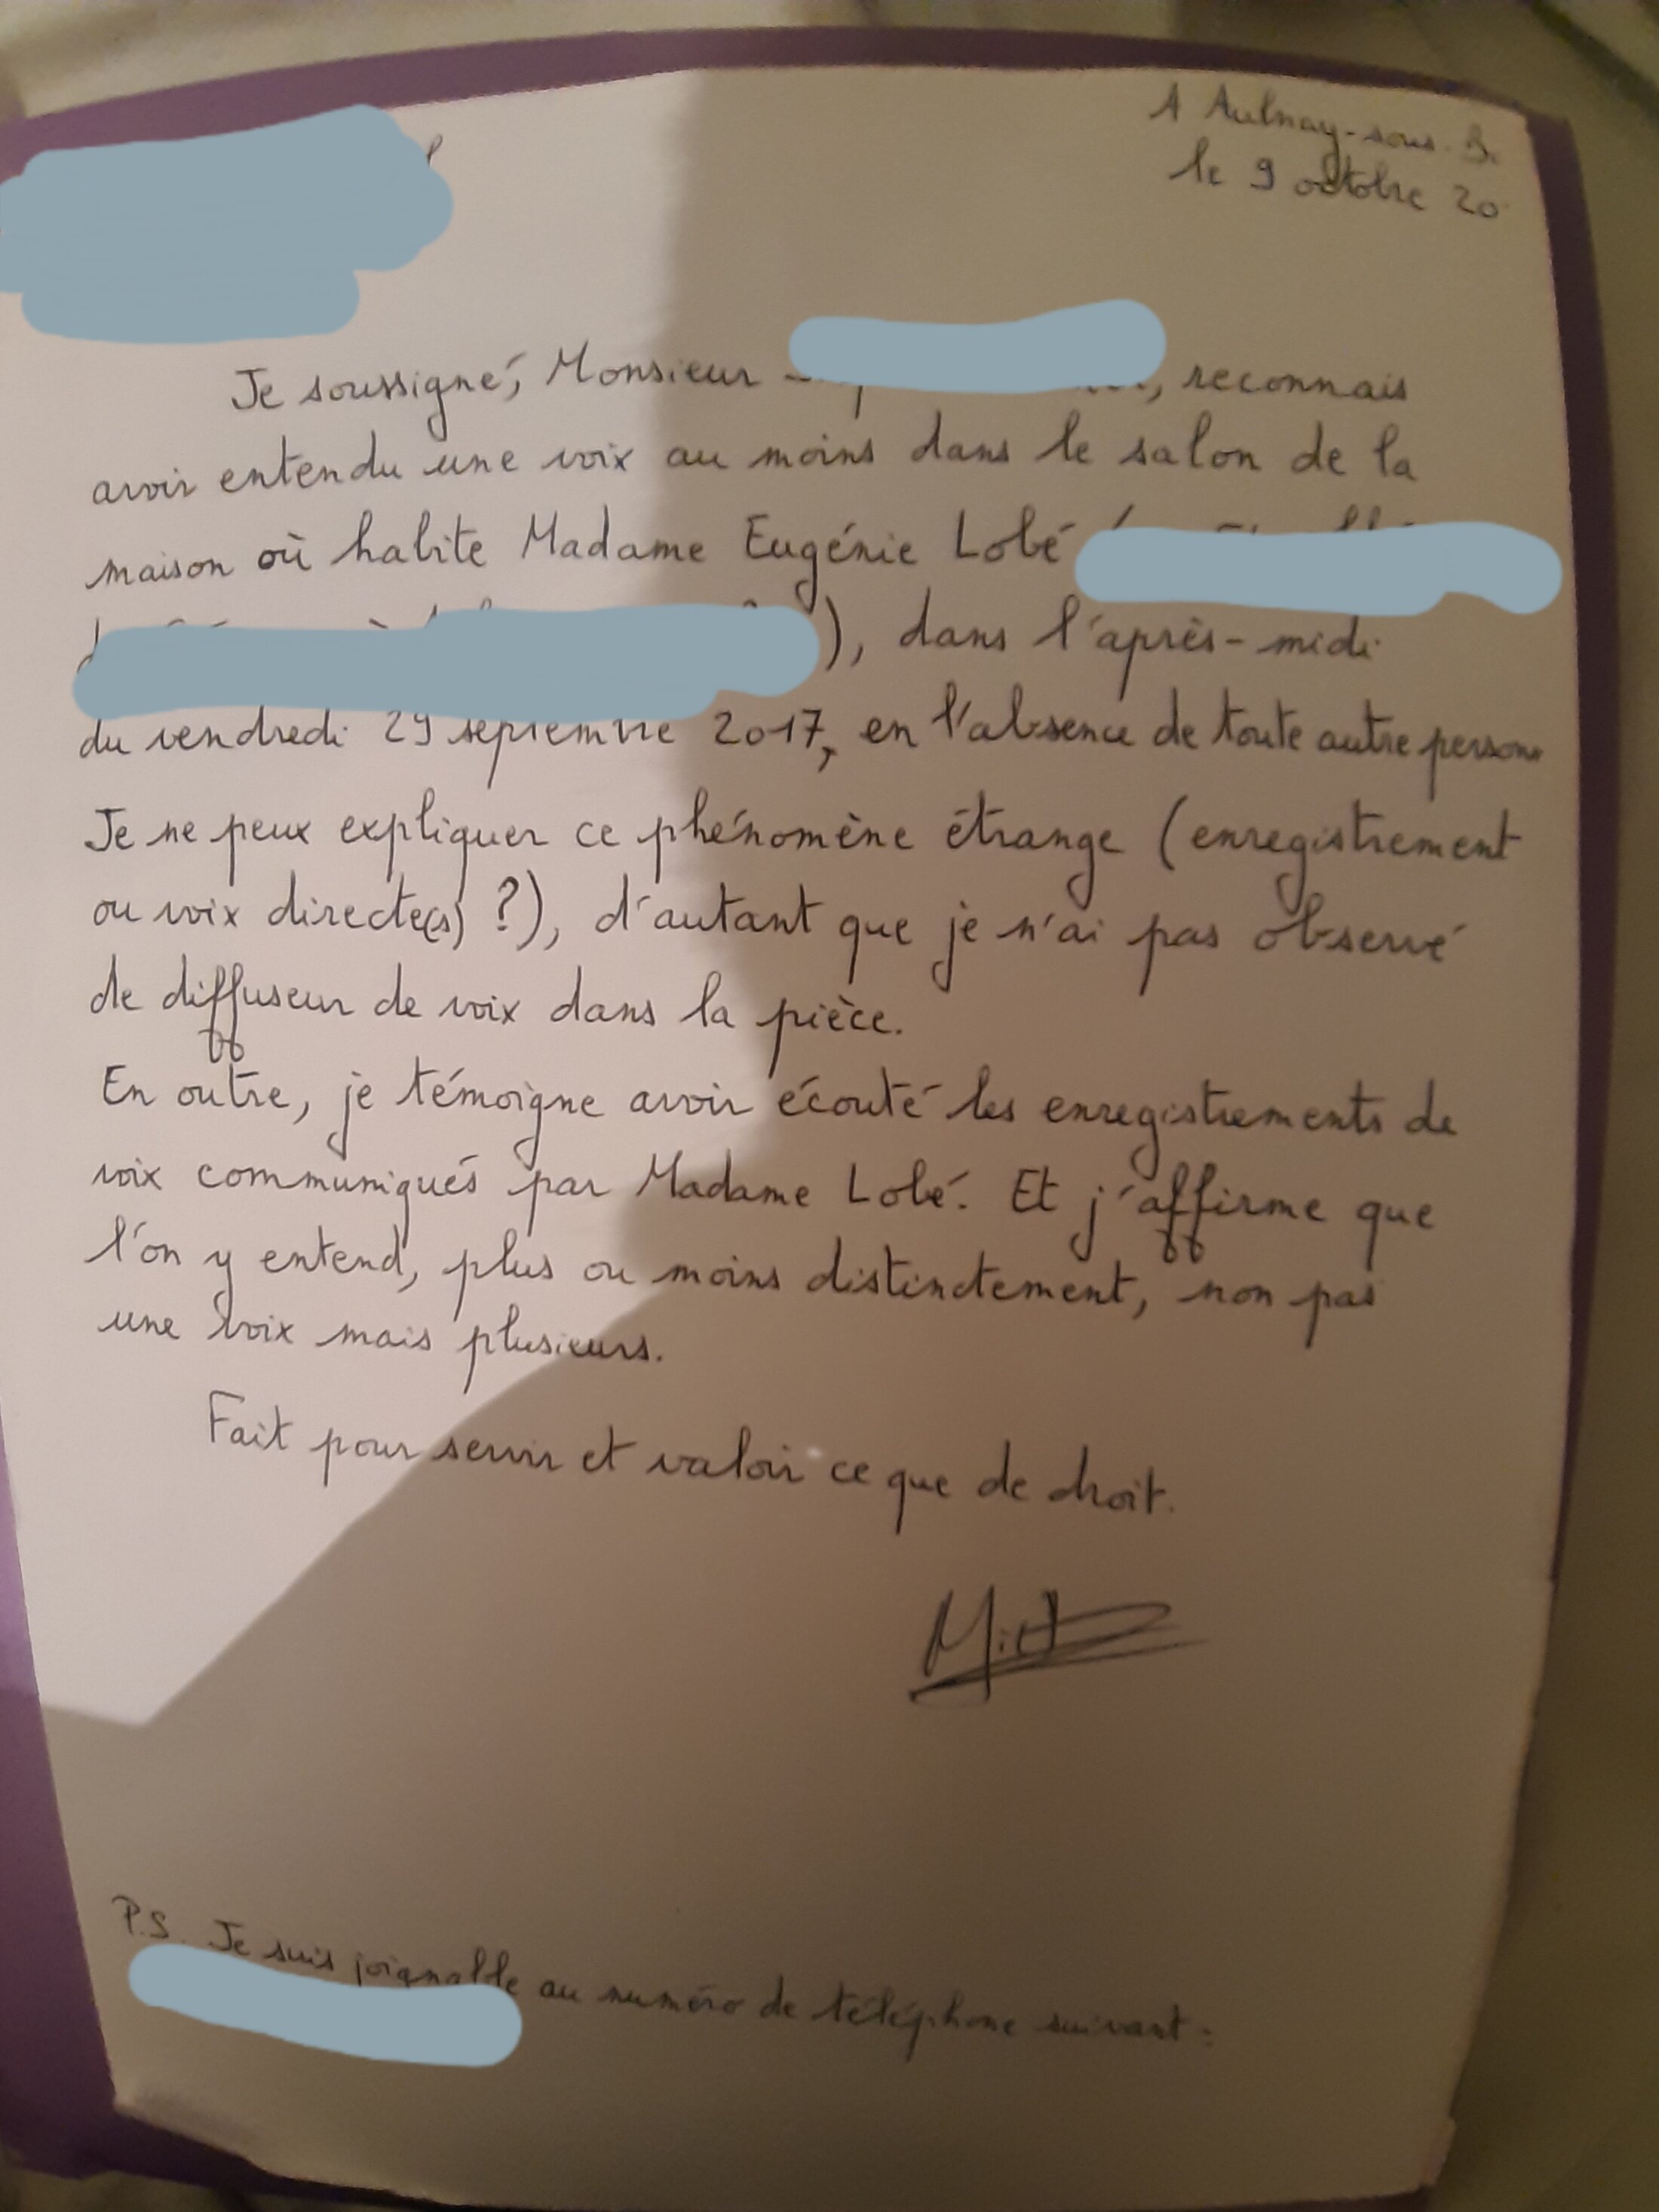 A Aulnay-sous-B.
le 9 octobre 20
Je soussigné, Monsieur , reconnais
avoir entendu une voix au moins dans le salon de la
maison où habite Madame Eugénie Lobé (
), dans l'après-midi
du vendredi 29 septembre 2017, en l'absence de toute autre person
Je ne peux expliquer ce phénomène étrange (enregistrement
ou voix directe(s) ?), d'autant que je n'ai pas observé
de diffuseur de voix dans la pièce.
En outre, je témoigne avoir écouté les enregistrements de
voix communiqués par Madame Lobé. Et j'affirme que
l'on y entend, plus ou moins distinctement, non pas
une voix mais plusieurs.
Fait pour servir et valoir ce que de droit.
P.S. Je suis joignable au numéro de téléphone suivant :